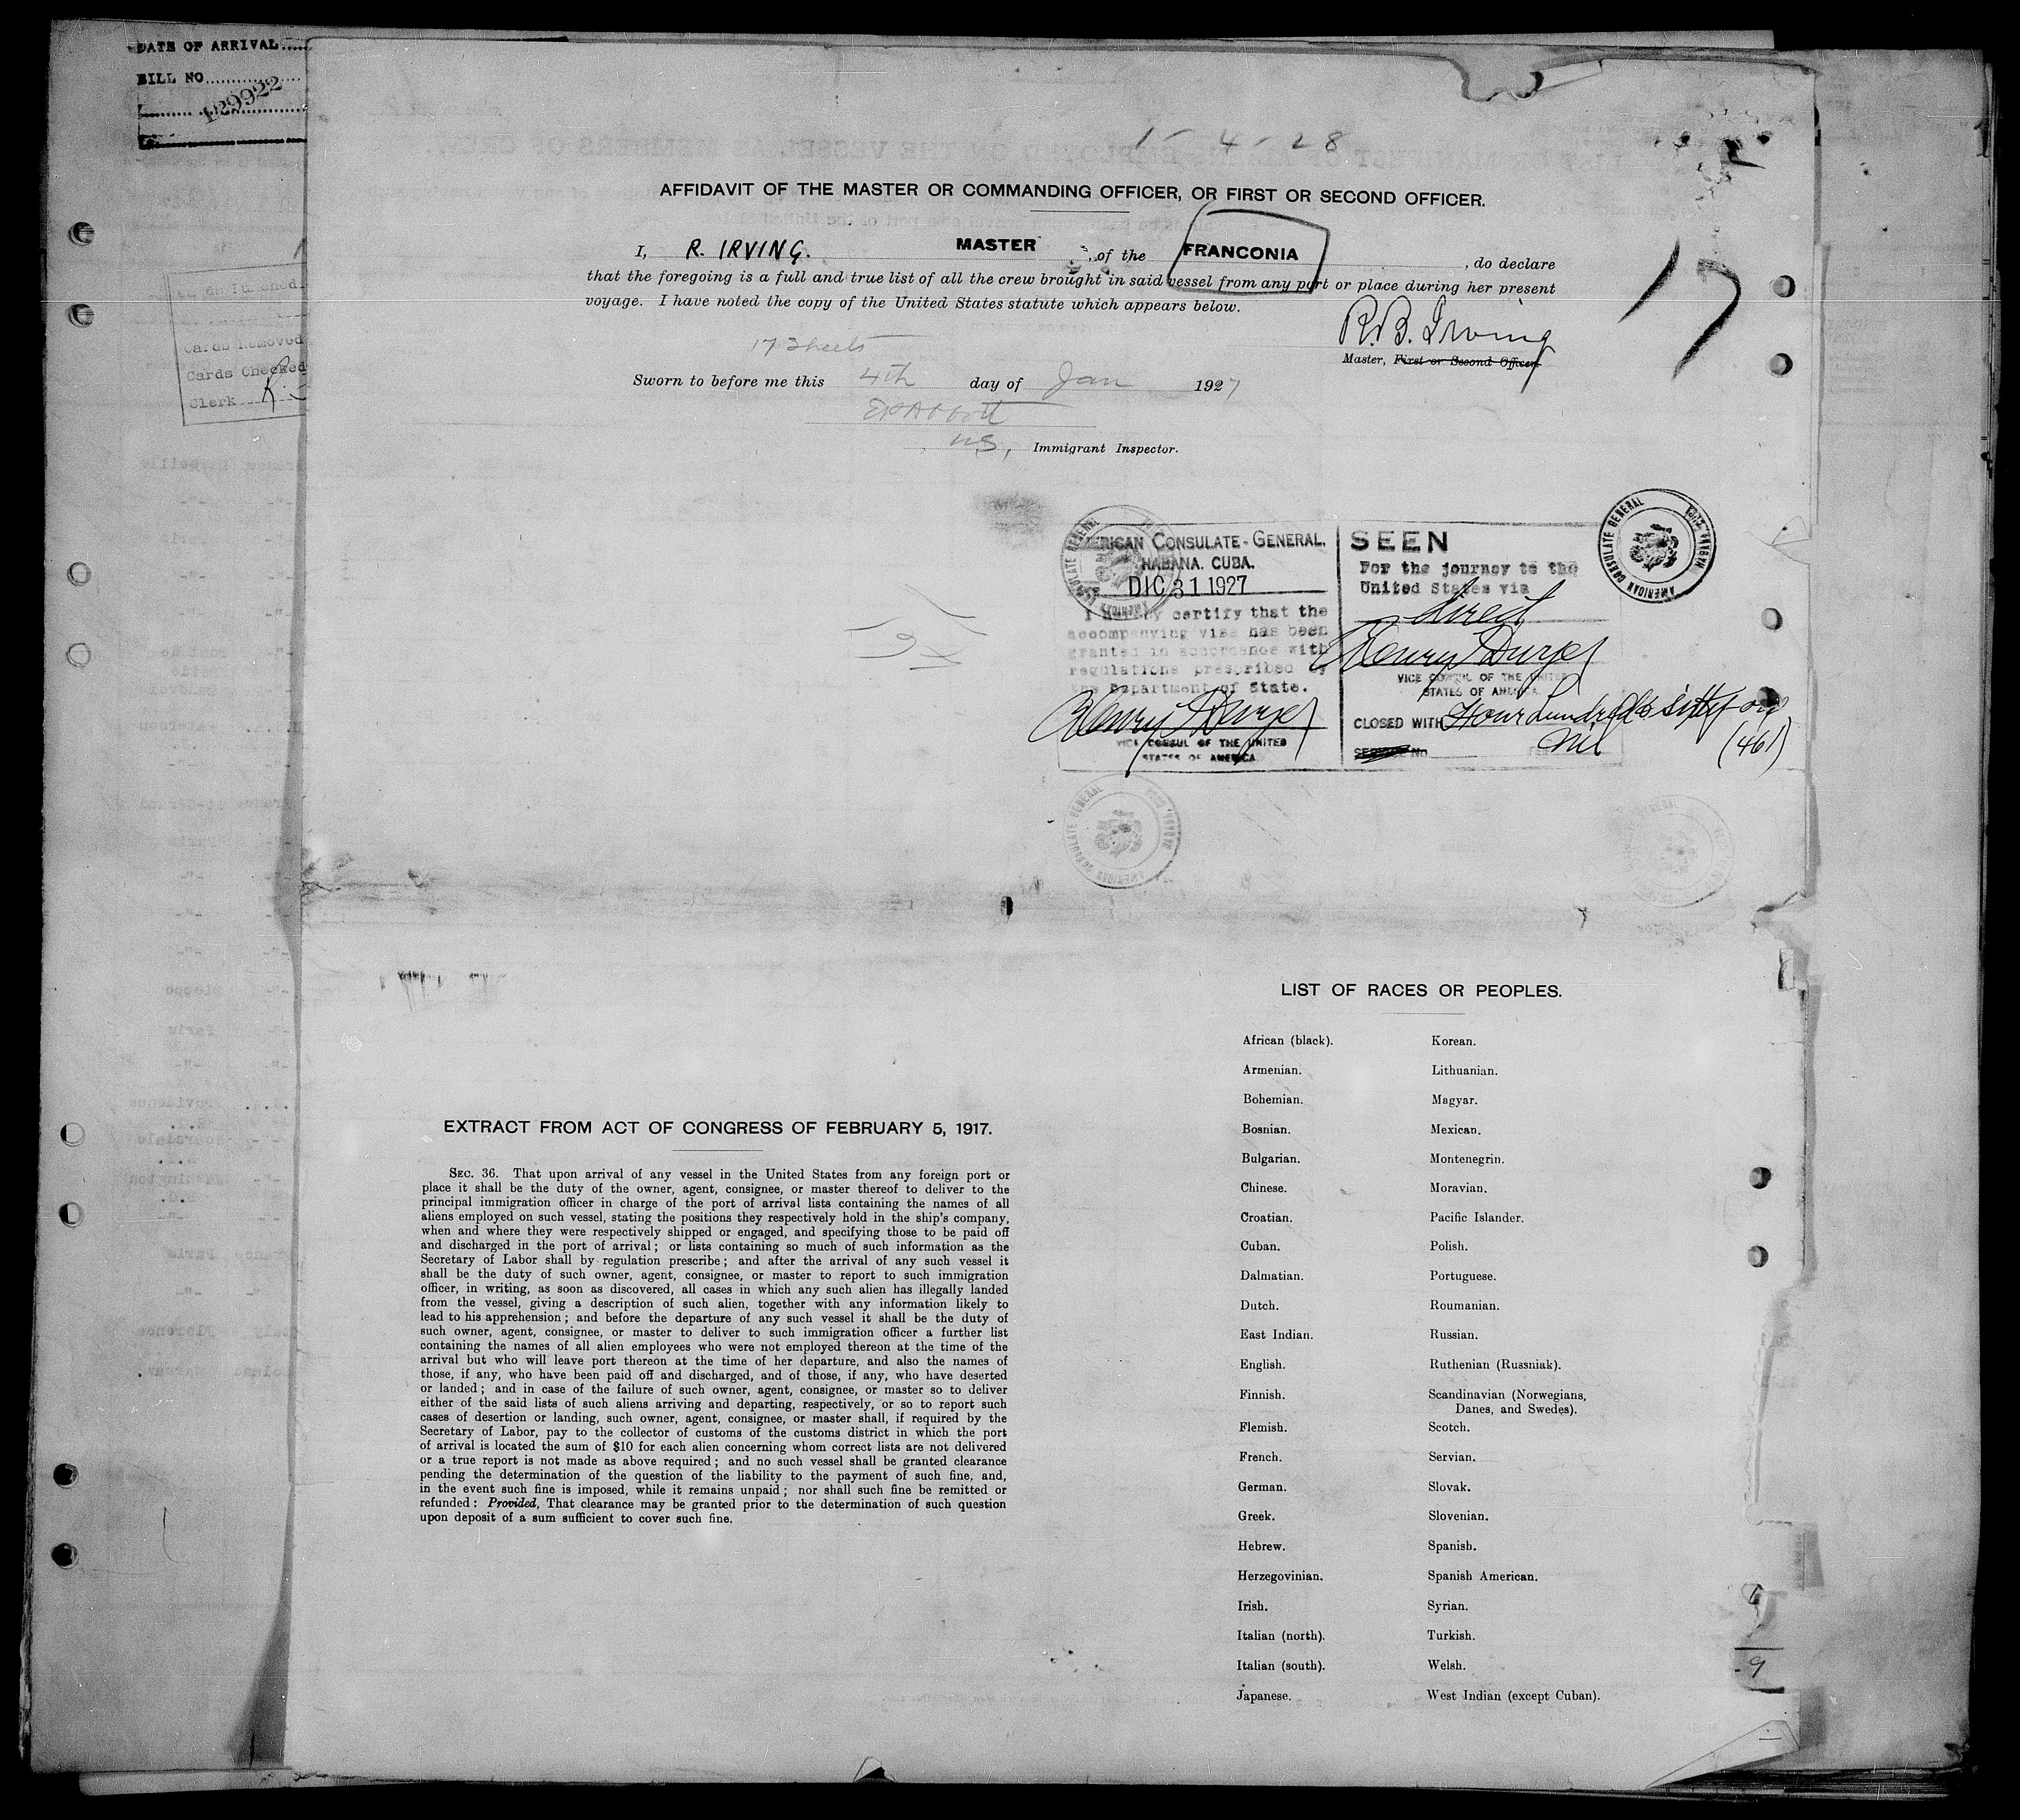 DATE OF ARRIVAL.....
BILL NO
129922
Cards Removed
Cards Checked
Clerk
1 - 4 - 28
AFFIDAVIT OF THE MASTER OR COMMANDING OFFICER, OR FIRST OR SECOND OFFICER.
I, R. IRVING. MASTER, of the FRANCONIA, do declare
that the foregoing is a full and true list of all the crew brought in said vessel from any port or place during her present
voyage. I have noted the copy of the United States statute which appears below.
17
R.B. Irving
17 Sheets
Master, First or Second Officer.
Sworn to before me this 4th day of Jan 1927
U.S, Immigrant Inspector.
AMERICAN CONSULATE-GENERAL.
HABANA. CUBA.
DIC 31 1927
I hereby certify that the
accompanying visa has been
granted in accordance with
regulations prescribed by
the Department of State.
VICE CONSUL OF THE UNITED
STATES OF AMERICA
SEEN
For the journey to the
United States via
direct
VICE CONSUL OF THE UNITED
STATES OF AMERICA
CLOSED WITH Four hundred & sixty-one
(461)
SERVICE No nil
AMERICAN CONSULATE GENERAL
HABANA, CUBA
AMERICAN CONSULATE GENERAL
HABANA, CUBA
LIST OF RACES OR PEOPLES.
African (black). Korean.
Armenian. Lithuanian.
Bohemian. Magyar.
Bosnian. Mexican.
Bulgarian. Montenegrin.
Chinese. Moravian.
Croatian. Pacific Islander.
Cuban. Polish.
Dalmatian. Portuguese.
Dutch. Roumanian.
East Indian. Russian.
English. Ruthenian (Russniak).
Finnish. Scandinavian (Norwegians,
Danes, and Swedes).
Flemish. Scotch.
French. Servian.
German. Slovak.
Greek. Slovenian.
Hebrew. Spanish.
Herzegovinian. Spanish American.
Irish. Syrian.
Italian (north). Turkish.
Italian (south). Welsh.
Japanese. West Indian (except Cuban).
9
EXTRACT FROM ACT OF CONGRESS OF FEBRUARY 5, 1917.
SEC. 36. That upon arrival of any vessel in the United States from any foreign port or
place it shall be the duty of the owner, agent, consignee, or master thereof to deliver to the
principal immigration officer in charge of the port of arrival lists containing the names of all
aliens employed on such vessel, stating the positions they respectively hold in the ship's company,
when and where they were respectively shipped or engaged, and specifying those to be paid off
and discharged in the port of arrival; or lists containing so much of such information as the
Secretary of Labor shall by regulation prescribe; and after the arrival of any such vessel it
shall be the duty of such owner, agent, consignee, or master to report to such immigration
officer, in writing, as soon as discovered, all cases in which any such alien has illegally landed
from the vessel, giving a description of such alien, together with any information likely to
lead to his apprehension; and before the departure of any such vessel it shall be the duty of
such owner, agent, consignee, or master to deliver to such immigration officer a further list
containing the names of all alien employees who were not employed thereon at the time of the
arrival but who will leave port thereon at the time of her departure, and also the names of
those, if any, who have been paid off and discharged, and of those, if any, who have deserted
or landed; and in case of the failure of such owner, agent, consignee, or master so to deliver
either of the said lists of such aliens arriving and departing, respectively, or so to report such
cases of desertion or landing, such owner, agent, consignee, or master shall, if required by the
Secretary of Labor, pay to the collector of customs of the customs district in which the port
of arrival is located the sum of $10 for each alien concerning whom correct lists are not delivered
or a true report is not made as above required; and no such vessel shall be granted clearance
pending the determination of the question of the liability to the payment of such fine, and,
in the event such fine is imposed, while it remains unpaid; nor shall such fine be remitted or
refunded: Provided, That clearance may be granted prior to the determination of such question
upon deposit of a sum sufficient to cover such fine.